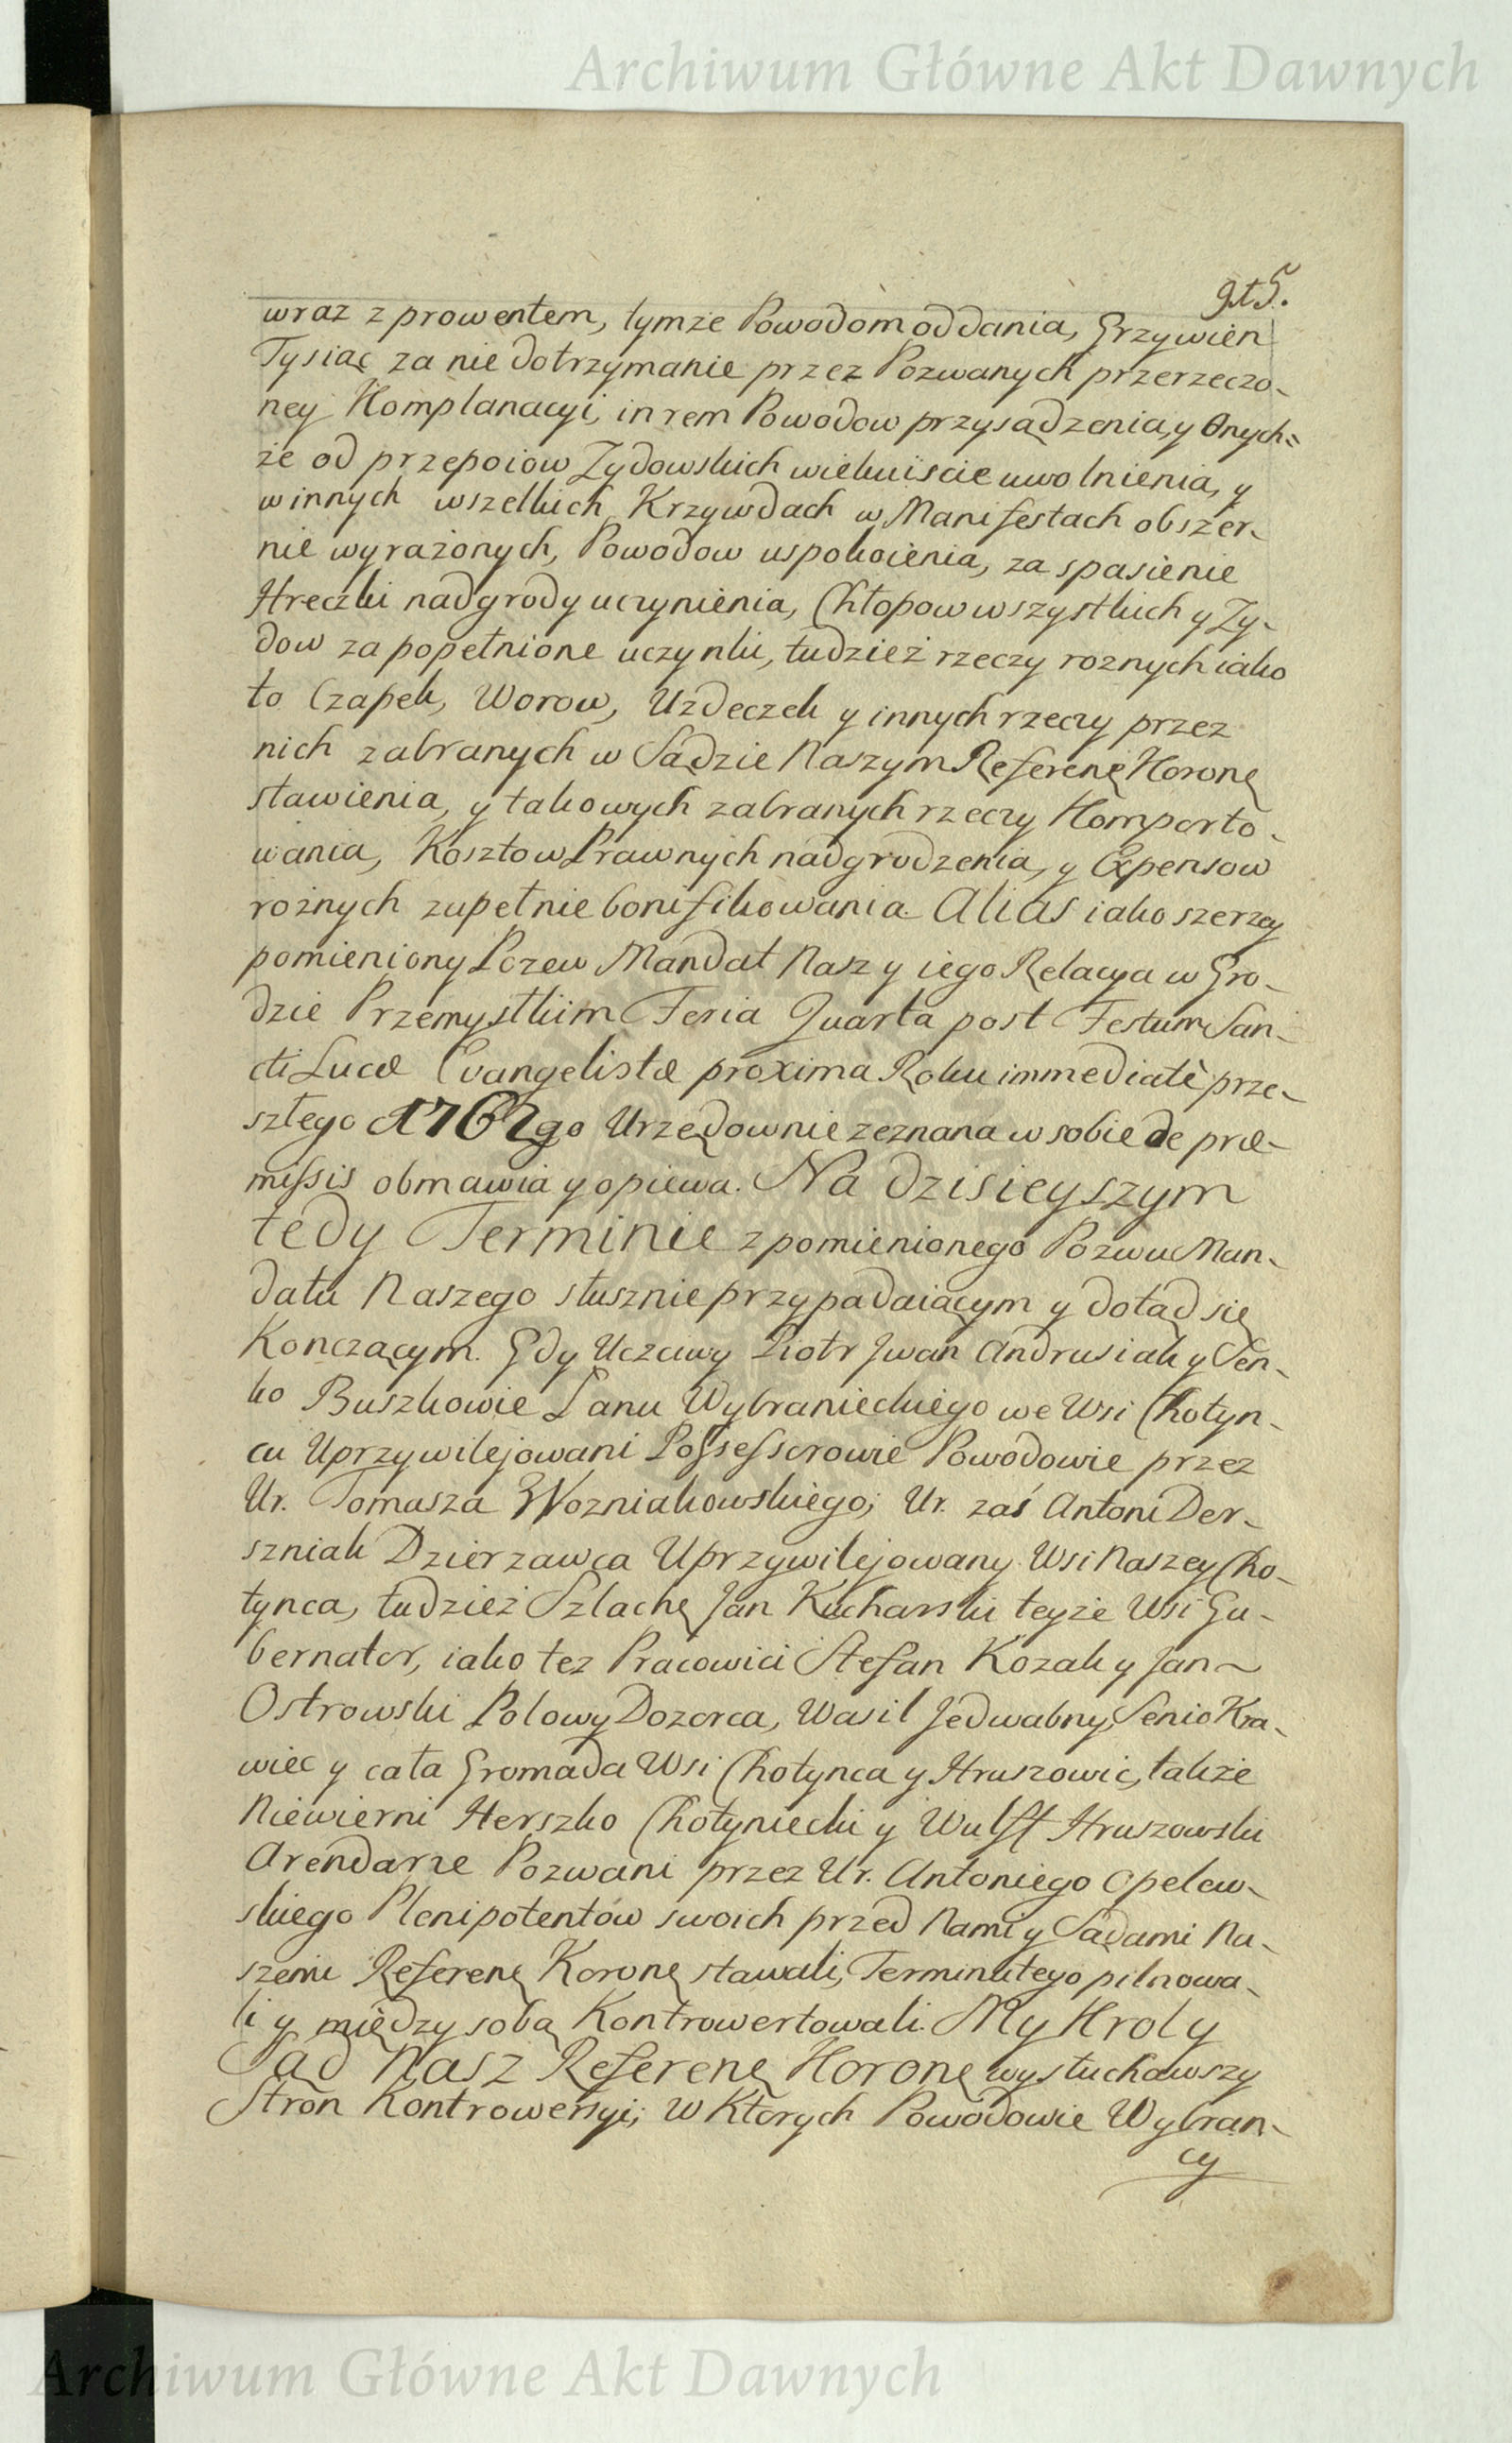 Archiwum Główne Akt Dawnych
915.
wraz z prowentem, tymże Powodom oddania, Grzywien
Tysiąc za nie dotrzymanie przez Pozwanych przerzeczo-
ney Komplanacyi, in rem Powodow przysądzenia, y Onych-
że od przepoiow Zydowskich wiekuiscie uwolnienia, y
w innych wszelkich Krzywdach w Manifestach obszer-
nie wyrażonych, Powodow uspokoienia, za spasienie
Hreczki nadgrody uczynienia, Chłopow wszystkich y Zy-
dow za popełnione uczynki, tudzież rzeczy roznych iako
to Czapek, Worow, Uzdeczek y innych rzeczy przez
nich zabranych w Sądzie Naszym Referenę Koronę
stawienia, y takowych zabranych rzeczy Komporto-
wania, Kosztow Prawnych nadgrodzenia, y Expensow
rożnych zupełnie bonifikowania. Alias iako szerzey
pomieniony Pozew Mandat Nasz y iego Relacya w Gro-
dzie Przemyslkim Feria Quarta post Festum San-
cti Lucæ Evangelistæ proxima Roku immediatè prze-
szłego 1762go Urzędownie zeznana w sobie de præ-
missis obmawia y opiewa. Na dzisieyszym
tedy Terminie z pomienionego Pozwu Man-
datu Naszego słusznie przypadaiącym y dotąd się
Konczącym. Gdy Uczciwy Piotr Jwan Andrusiak y Sen-
ko Buszkowie Łanu Wybranieckiego we Wsi Chotyn-
cu Uprzywilejowani Possessorowie Powodowie przez
Ur. Tomasza Wozniakowskiego; Ur. zaś Antoni Der-
szniak Dzierzawca Uprzywilejowany Wsi Naszey Cho-
tynca, tudzież Szlachę Jan Kucharski teyże Wsi Gu-
bernator, iako tez Pracowici Stefan Kozak y Jan
Ostrowski Polowy Dozorca, Wasil Jedwabny, Senio Kra-
wiec y cała Gromada Wsi Chotynca y Hruszowic, także
Niewierni Herszko Chotyniecki y Wulff Hruszowski
Arendarze Pozwani przez Ur. Antoniego Opelew-
skiego Plenipotentów swoich przed Nami y Sądami Na-
szemi Referenę Koronę stawali, Terminu tego pilnowa-
li y między sobą Kontrowertowali. My Krol y
Sąd Nasz Referenę Koronę wysłuchawszy
Stron Kontrowersyi; w Ktorych Powodowie Wybran-
cy
Archiwum Główne Akt Dawnych